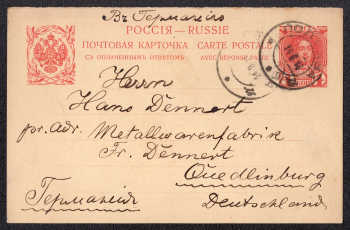 Въ Германію
РОССІЯ — RUSSIE
ПОЧТОВАЯ КАРТОЧКА CARTE POSTALE
СЪ ОПЛАЧЕННЫМЪ ОТВѢТОМЪ. AVEC RÉPONSE PAYÉE
Herrn
Hans Dennert
per. Adr. Metallwarenfabrik
Fr. Dennert
Quedlinburg
Германія Deutschland